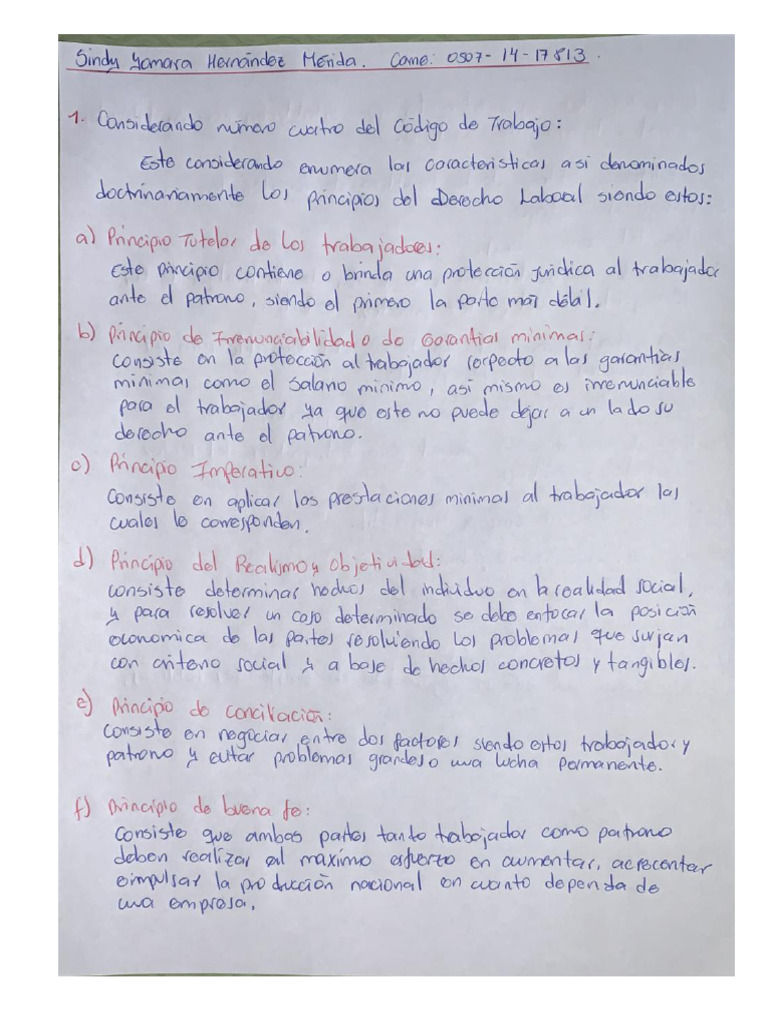 Sindy Yamara Hernández Mérida. Carne: 0507-14-17813.
1. Considerando número cuatro del Código de Trabajo:
Este considerando enumera las caracteristicas asi denominados
doctrinariamente los principios del Derecho Laboral siendo estos:
a) Principio Tutelar de los trabajadores:
Este principio contiene o brinda una protección juridica al trabajador
ante el patrono, siendo el primero la parte mas débil.
b) Principio de Irrenunciabilidad o de Garantias minimas:
consiste en la protección al trabajador respecto a las garantias
minimas como el salario minimo, asi mismo es irrenunciable
para el trabajador ya que este no puede dejar a un lado su
derecho ante el patrono.
c) Principio Imperativo:
Consiste en aplicar las prestaciones minimas al trabajador las
cuales le corresponden.
d) Principio del Realismo y Objetividad:
consiste determinar hechos del individuo en la realidad social,
y para resolver un caso determinado se debe enfocar la posición
economica de las partes resolviendo los problemas que surjan
con criterio social y a base de hechos concretos y tangibles.
e) Principio de conciliación:
Consiste en negociar entre dos factores siendo estos trabajador y
patrono y evitar problemas grandes o una lucha permanente.
f) Principio de buena fe:
Consiste que ambas partes tanto trabajador como patrono
deben realizar al maximo esfuerzo en aumentar, acrecentar
e impulsar la producción nacional en cuanto dependa de
una empresa.